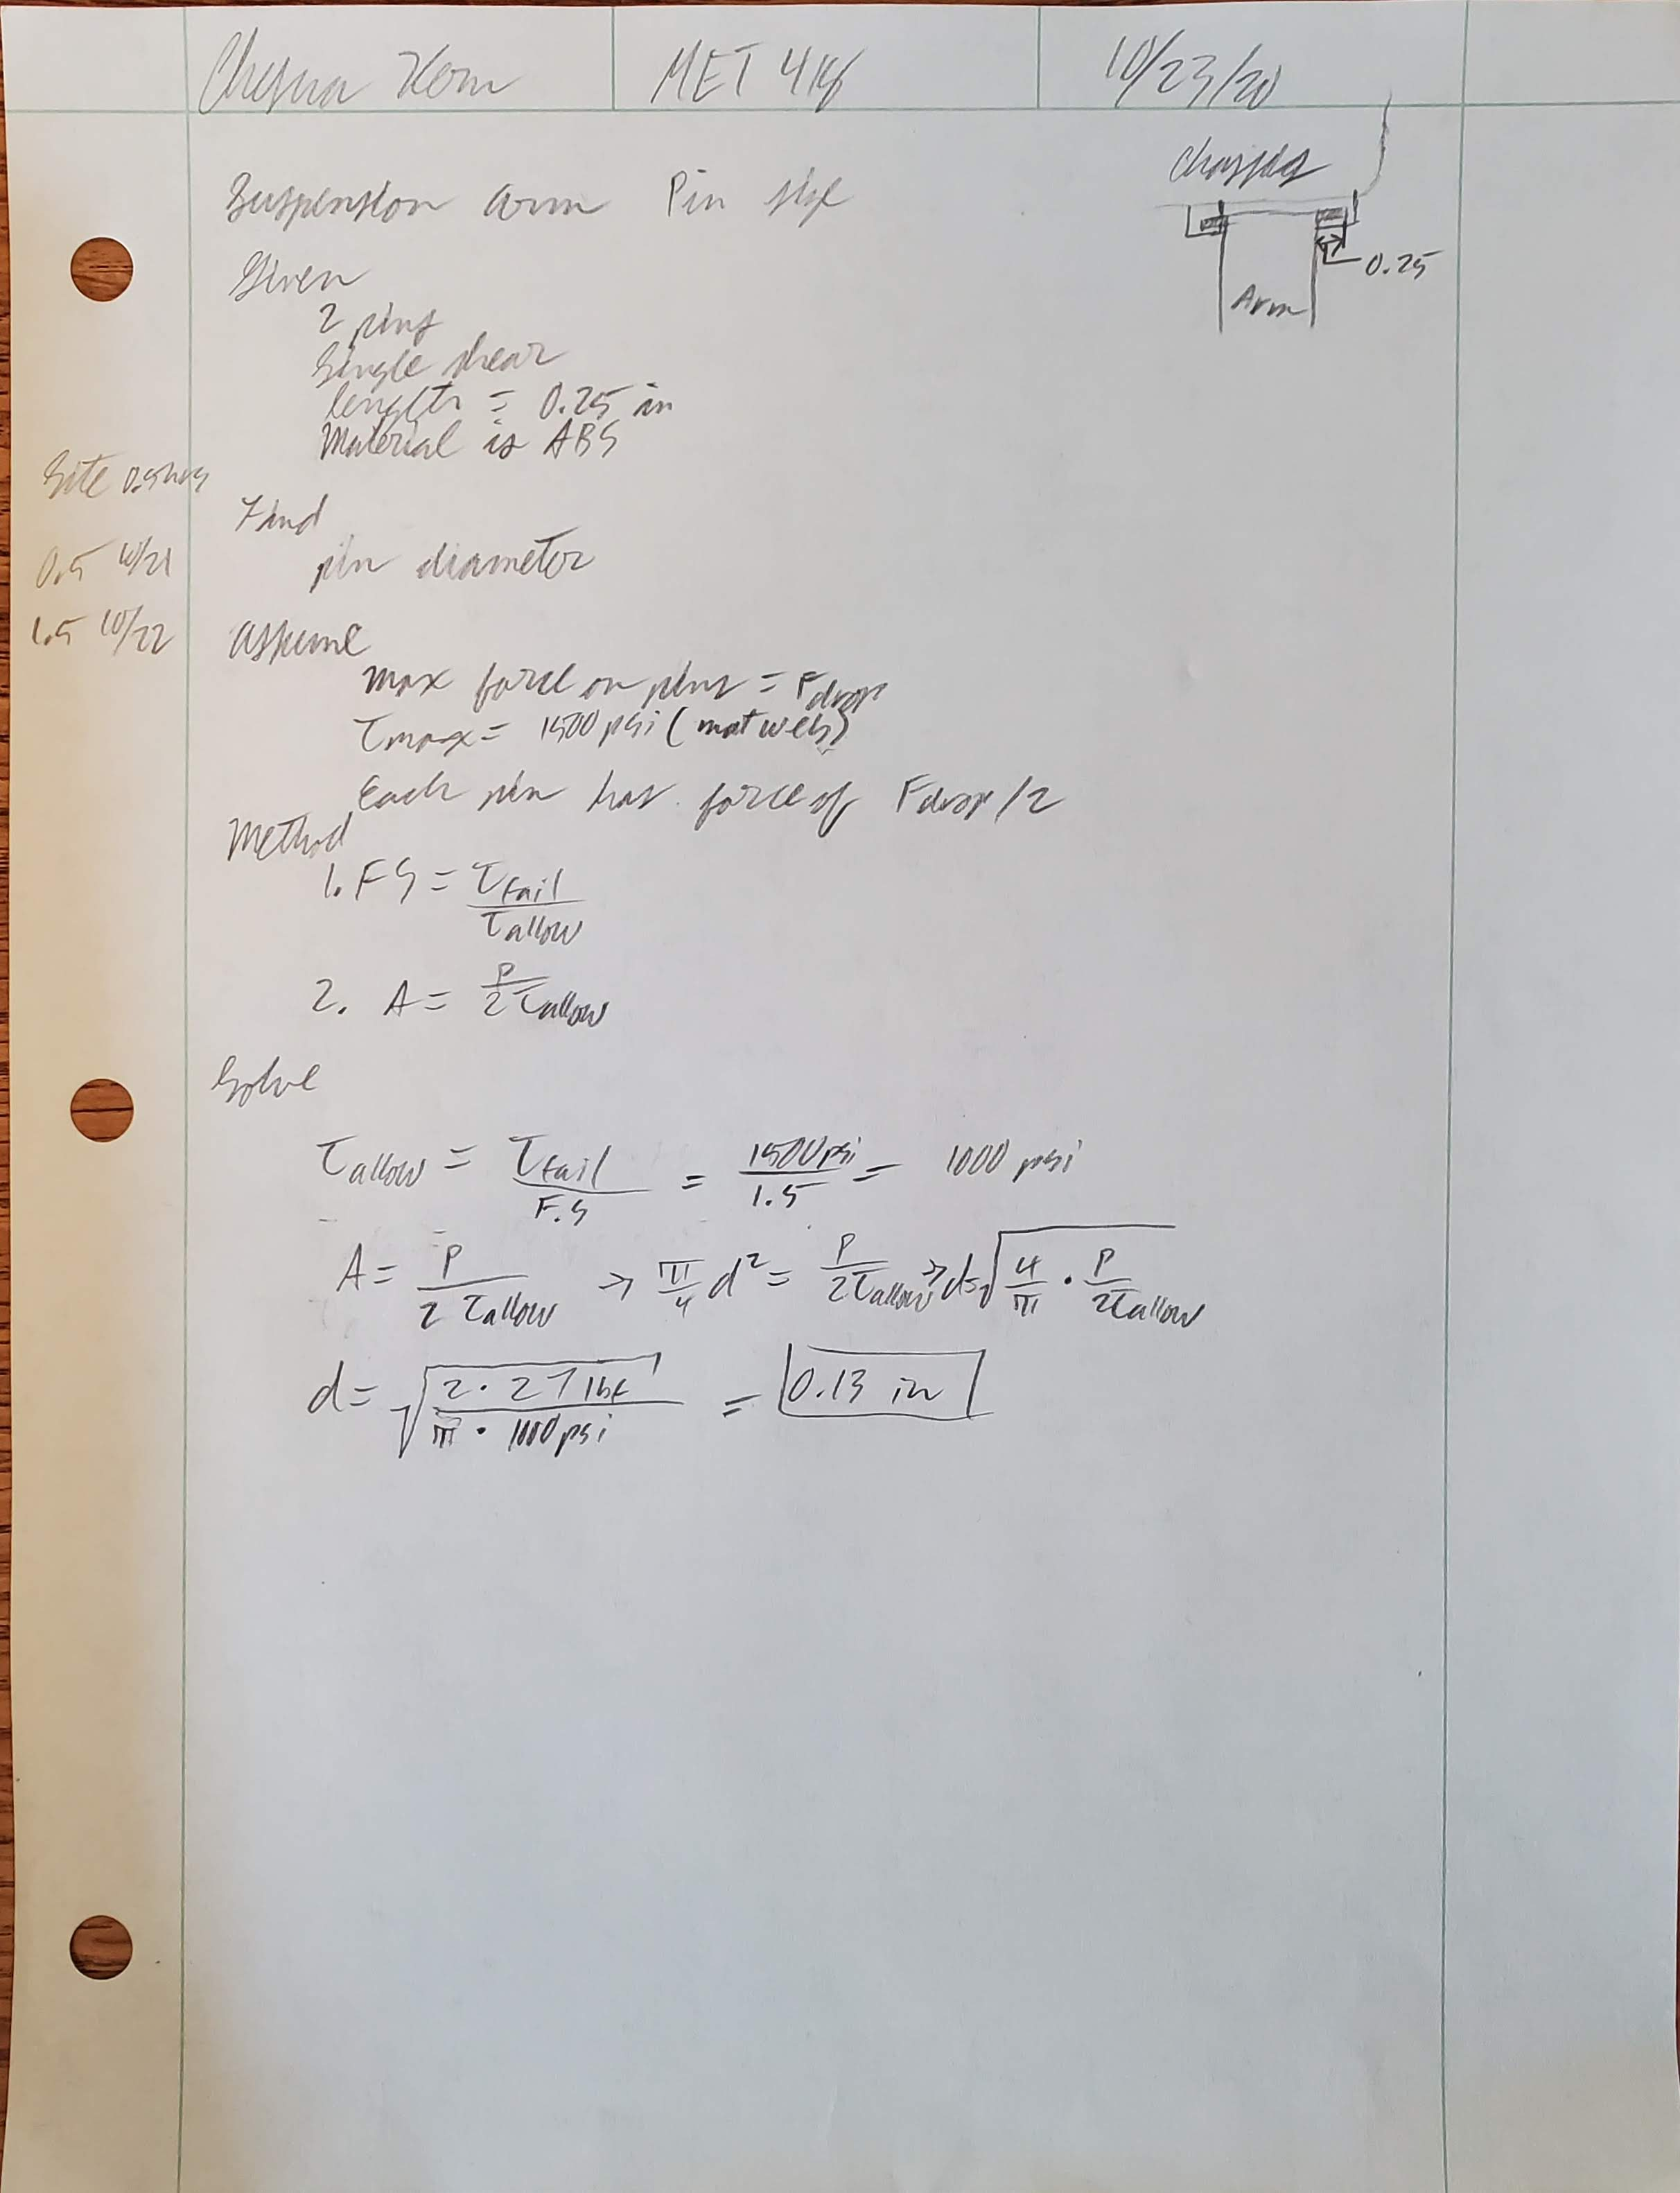 MET 418
10/23/20
Suspension arm Pin size
Chassis
0.25
Arm
Given
2 pins
Single shear
length = 0.25 in
Material is ABS
Site 0.5hrs
0.5 10/21
1.5 10/22
Find
pin diameter
Assume
max force on pins = Fdrop
τmax = 1500 psi (matweb)
Each pin has force of Fdrop/2
Method
1. FS = τfail / τallow
2. A = P / 2τallow
Solve
τallow = τfail / F.S = 1500psi / 1.5 = 1000 psi
A = P / 2 τallow → π/4 d² = P / 2τallow → d = √(4/π · P / 2τallow)
d = √(2 · 27 lbf / π · 1000psi) = 0.13 in